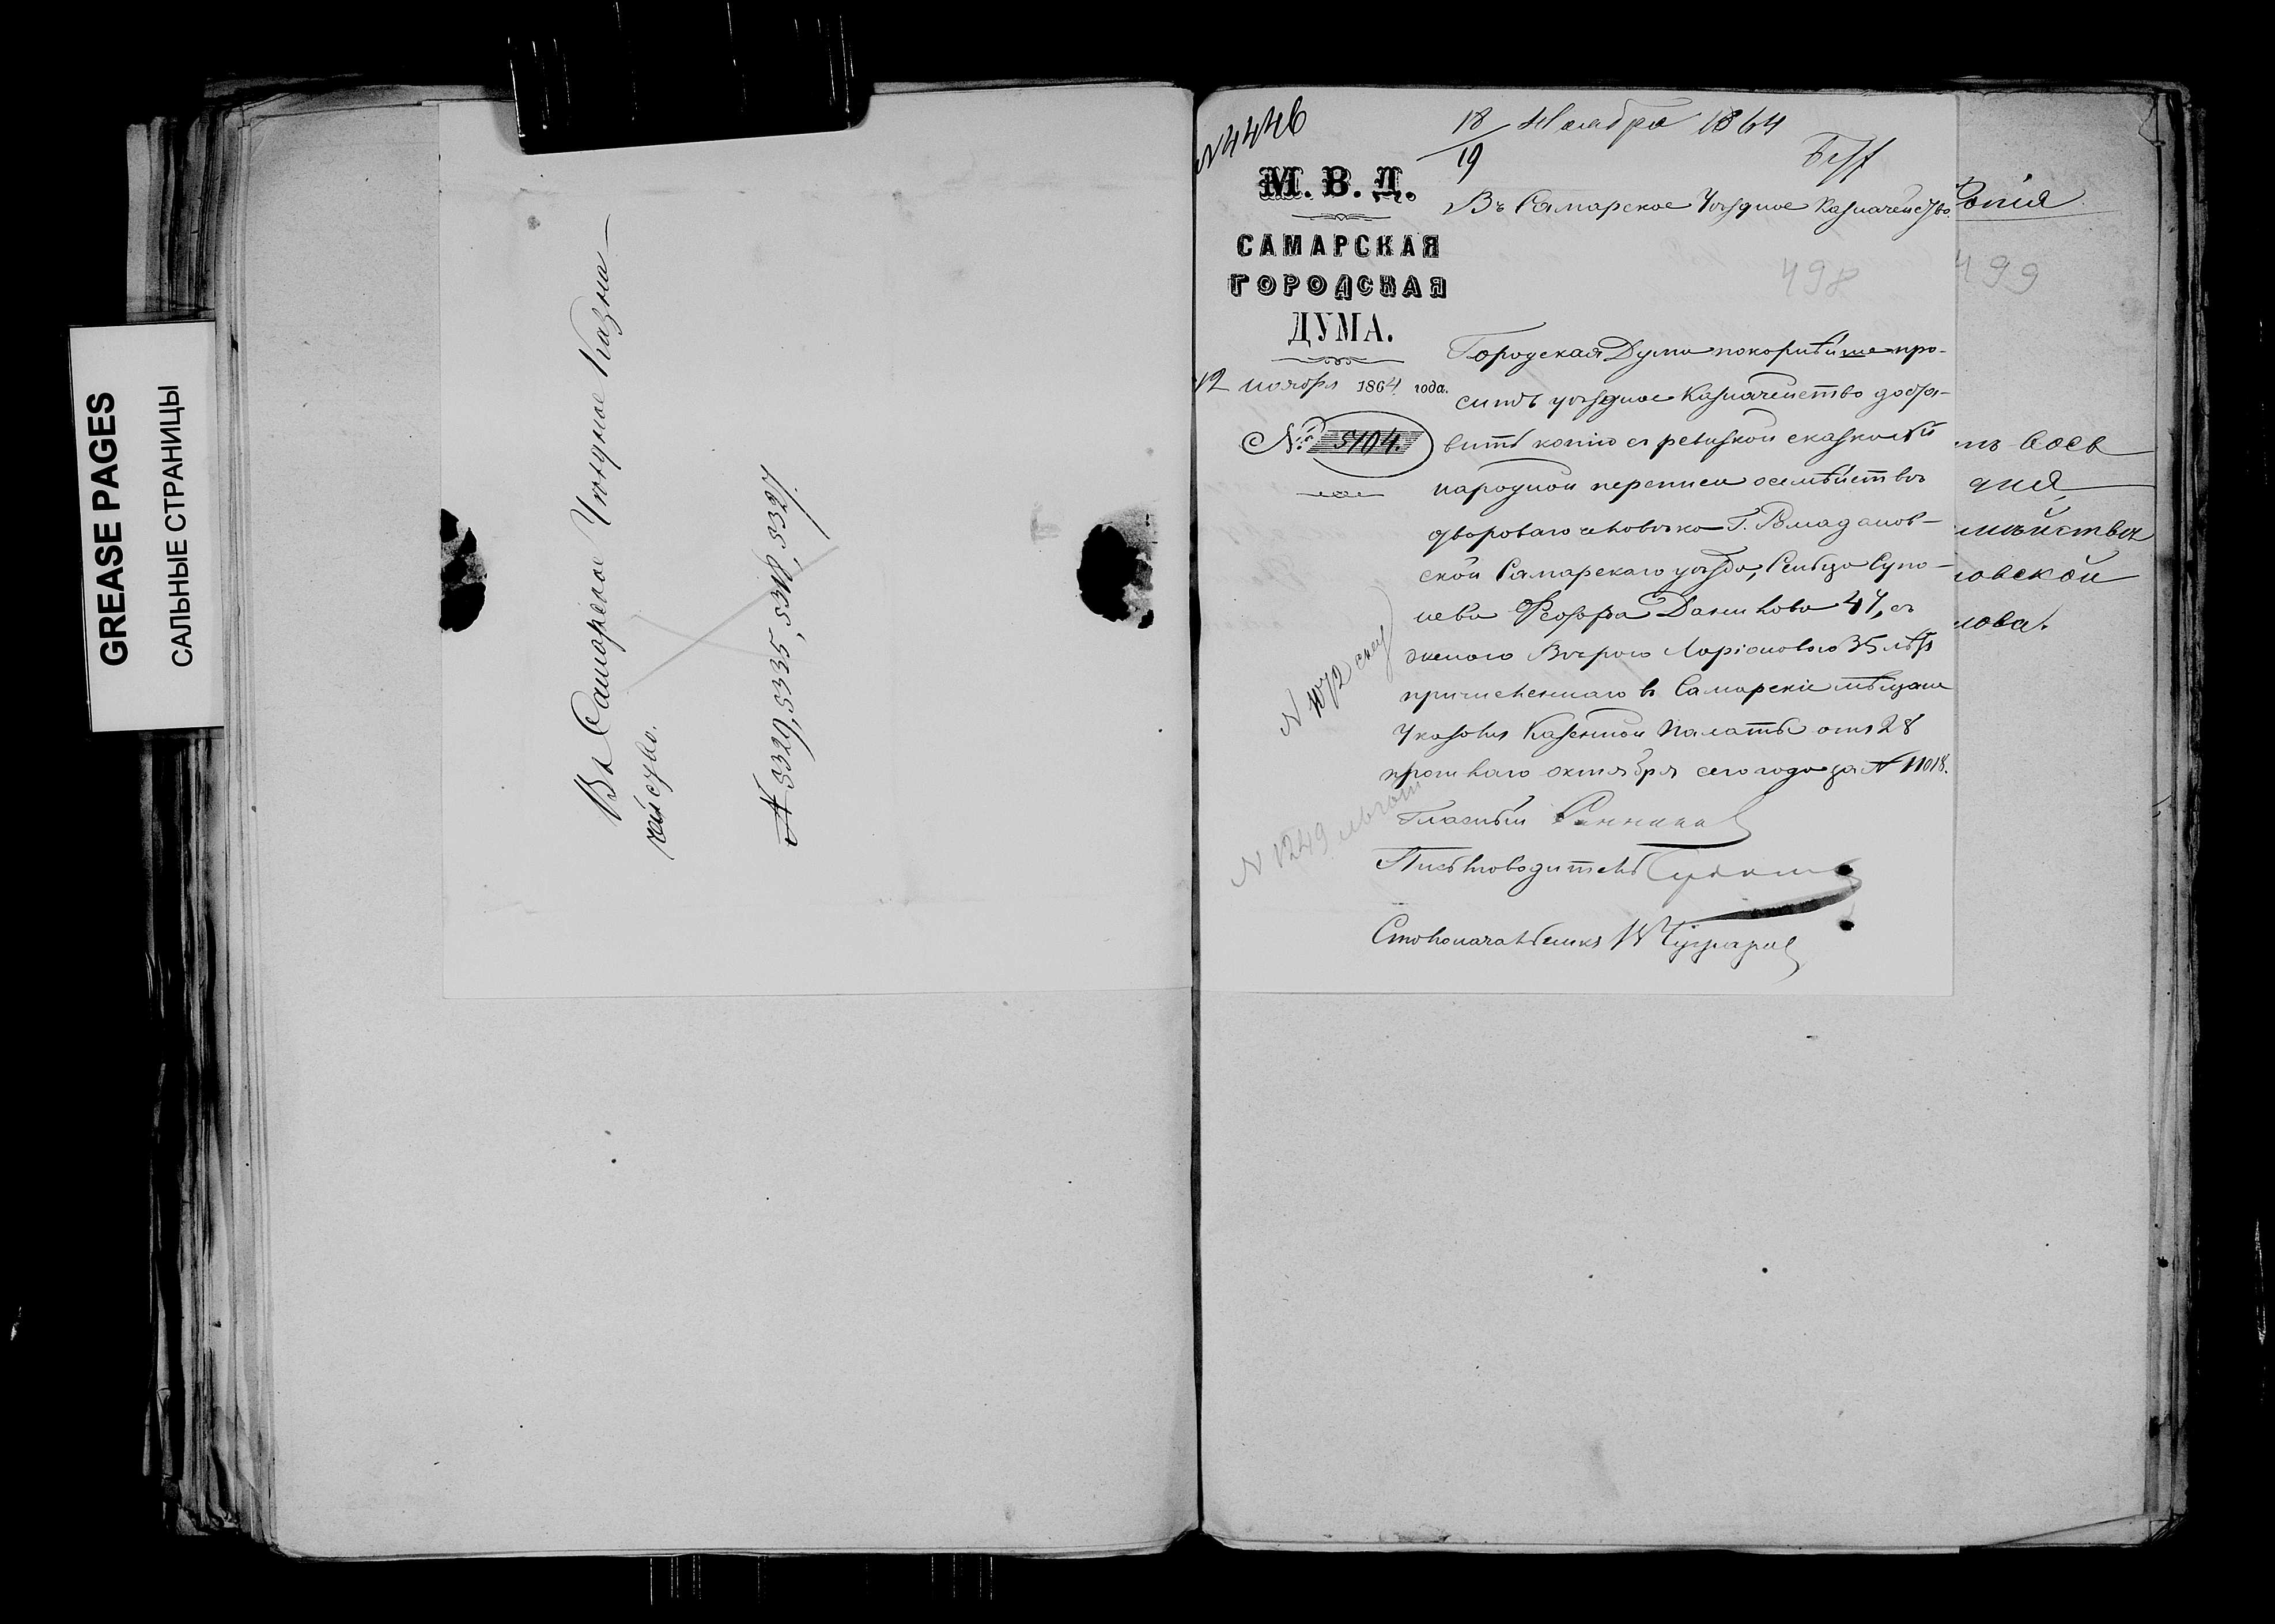 GREASE PAGES
САЛЬНЫЕ СТРАНИЦЫ
Въ Самарское Уѣздное Казна-
чейство.
№ 5329, 5335, 5318, 5327.
№ 4446
18/19 Ноября 1864
М. В. Д.
САМАРСКАЯ
ГОРОДСКАЯ
ДУМА.
12 ноября 1864 года.
№ 5104.
Въ Самарское Уѣздное Казначейство.
498
Городская Дума покорнѣйше про-
ситъ уѣздное Казначейство доста-
вить копію съ ревизкой сказки
народной переписи о семѣйствѣ
двороваго человѣка Г.
ской Самарскаго уѣзда, Сельца
Федора Данилова 47, съ
женою Ларіоновою 35 лѣтъ
причисленнаго въ Самарскіе мѣщане
Указомъ Казенной Палаты отъ 28
прошлаго октября сего года за № 11018.
Гласный
Письмоводитель
Столоначальникъ
№ 1072
№ 1249
Копія
499
дня
мѣйства
овской
лова.